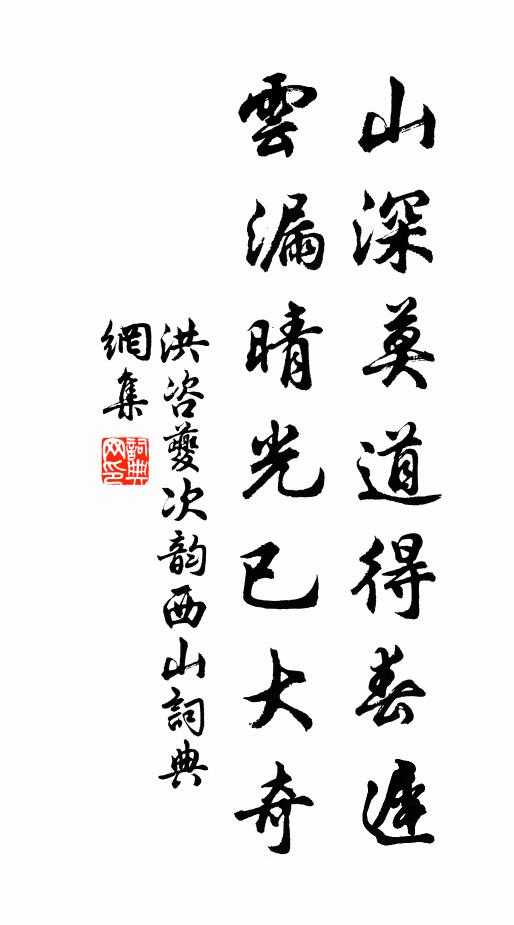 山深莫道得春遲
雲漏晴光已大奇
洪咨夔次韵西山詞典
網集
詞典網印